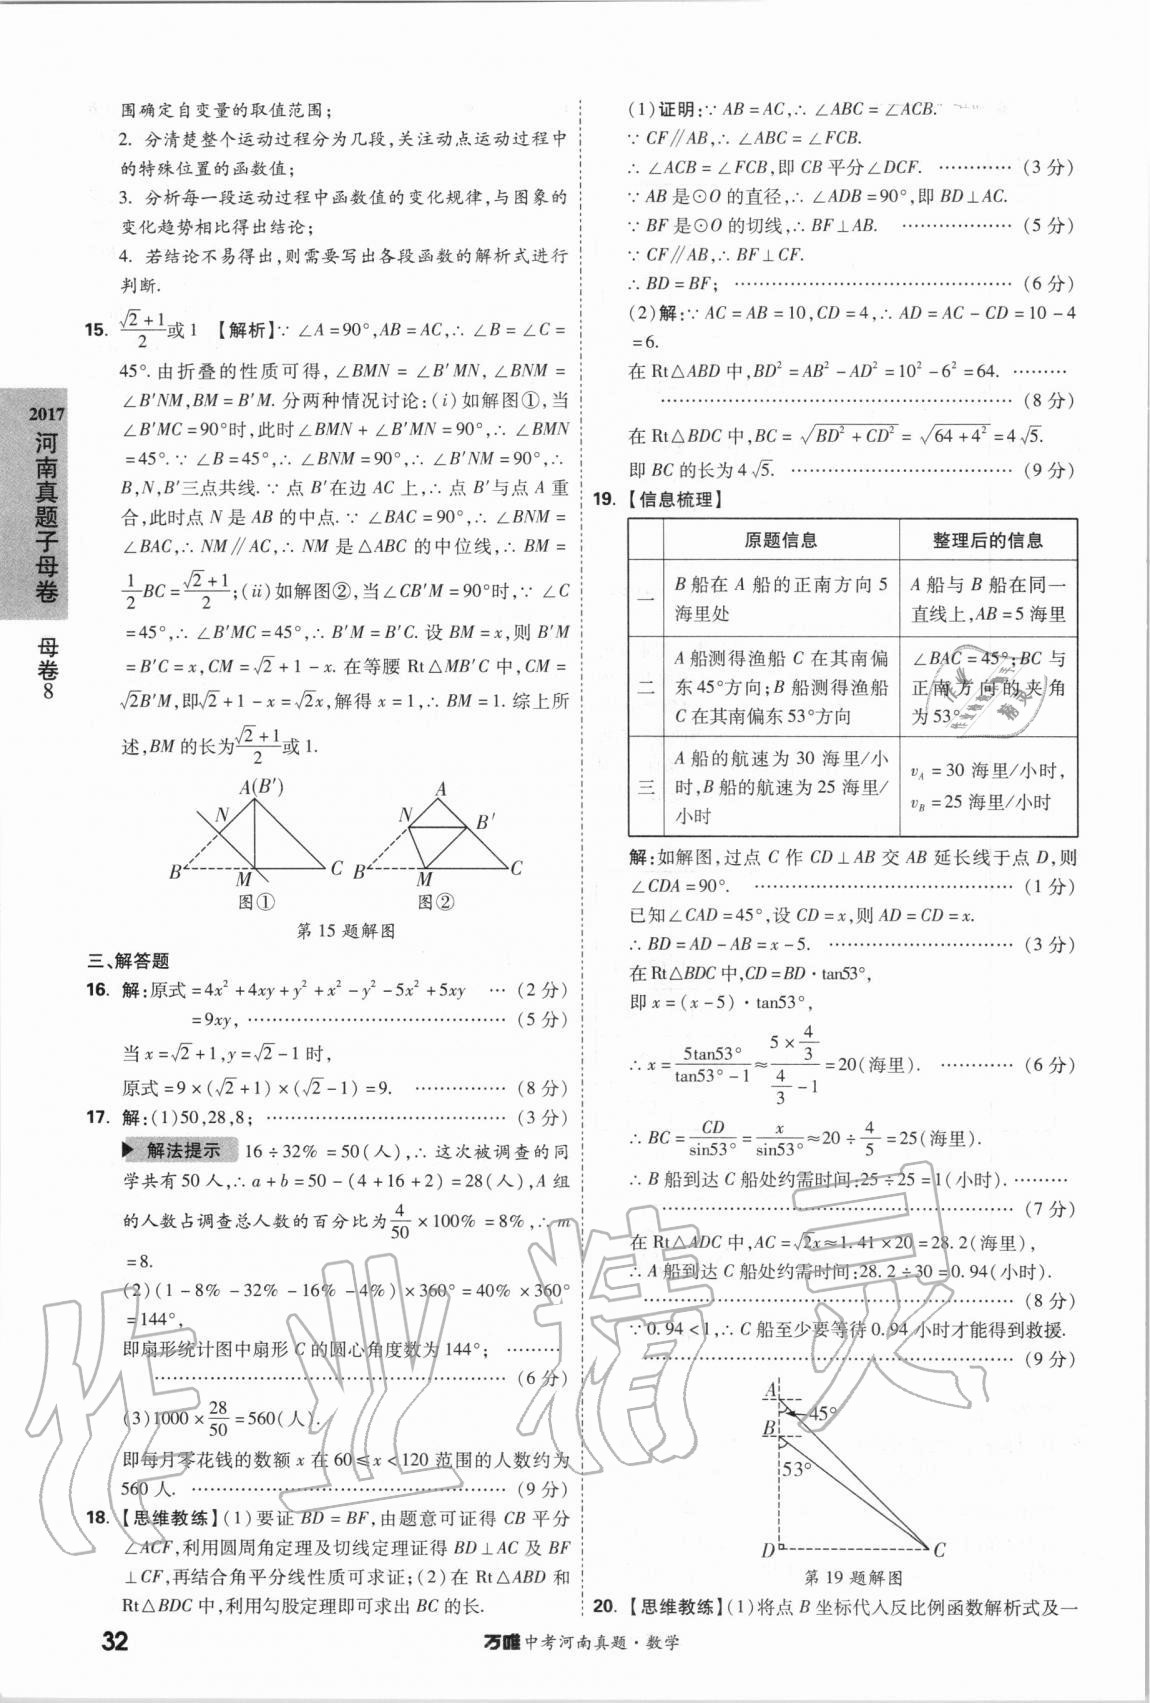 围确定自变量的取值范围；
2. 分清楚整个运动过程分为几段，关注动点运动过程中
的特殊位置的函数值；
3. 分析每一段运动过程中函数值的变化规律，与图象的
变化趋势相比得出结论；
4. 若结论不易得出，则需要写出各段函数的解析式进行
判断.
15. (√2+1)/2 或 1 【解析】∵∠A=90°，AB=AC，∴∠B=∠C=
45°. 由折叠的性质可得，∠BMN=∠B′MN，∠BNM=
∠B′NM，BM=B′M. 分两种情况讨论：(ⅰ)如解图①，当
∠B′MC=90°时，此时∠BMN+∠B′MN=90°，∴∠BMN
=45°. ∵∠B=45°，∴∠BNM=90°，∴∠B′NM=90°，∴
B，N，B′三点共线. ∵点 B′在边 AC 上，∴点 B′与点 A 重
合，此时点 N 是 AB 的中点. ∵∠BAC=90°，∴∠BNM=
∠BAC，∴NM∥AC，∴NM 是△ABC 的中位线，∴BM=
1/2 BC=(√2+1)/2；(ⅱ)如解图②，当∠CB′M=90°时，∵∠C
=45°，∴∠B′MC=45°，∴B′M=B′C. 设 BM=x，则 B′M
=B′C=x，CM=√2+1-x. 在等腰 Rt△MB′C 中，CM=
√2B′M，即√2+1-x=√2x，解得 x=1，∴BM=1. 综上所
述，BM 的长为(√2+1)/2或 1.
A(B′)
N
B
M
C
图①
A
N
B′
B
M
C
图②
第 15 题解图
三、解答题
16. 解：原式=4x²+4xy+y²+x²-y²-5x²+5xy … (2 分)
=9xy，…………………………………… (5 分)
当 x=√2+1，y=√2-1 时，
原式=9×(√2+1)×(√2-1)=9. …………… (8 分)
17. 解：(1)50，28，8；………………………………… (3 分)
解法提示 16÷32%=50(人)，∴这次被调查的同
学共有 50 人，∴a+b=50-(4+16+2)=28(人)，A 组
的人数占调查总人数的百分比为4/50×100%=8%，∴m
=8.
(2)(1-8%-32%-16%-4%)×360°=40%×360°
=144°，
即扇形统计图中扇形 C 的圆心角度数为 144°；………
………………………………………………… (6 分)
(3)1000×28/50=560(人).
即每月零花钱的数额 x 在 60≤x<120 范围的人数约为
560 人. …………………………………………… (9 分)
18. 【思维教练】(1)要证 BD=BF，由题意可证得 CB 平分
∠ACF，利用圆周角定理及切线定理证得 BD⊥AC 及 BF
⊥CF，再结合角平分线性质可求证；(2)在 Rt△ABD 和
Rt△BDC 中，利用勾股定理即可求出 BC 的长.
(1)证明：∵AB=AC，∴∠ABC=∠ACB.
∵CF∥AB，∴∠ABC=∠FCB.
∴∠ACB=∠FCB，即 CB 平分∠DCF. ………… (3 分)
∵AB 是⊙O 的直径，∴∠ADB=90°，即 BD⊥AC.
∵BF 是⊙O 的切线，∴BF⊥AB. ……………… (5 分)
∵CF∥AB，∴BF⊥CF.
∴BD=BF；……………………………………… (6 分)
(2)解：∵AC=AB=10，CD=4，∴AD=AC-CD=10-4
=6.
在 Rt△ABD 中，BD²=AB²-AD²=10²-6²=64. ………
………………………………………………… (8 分)
在 Rt△BDC 中，BC=√(BD²+CD²)=√(64+4²)=4√5.
即 BC 的长为 4√5. ……………………………… (9 分)
19. 【信息梳理】
原题信息 整理后的信息
一 B 船在 A 船的正南方向 5 海里处 A 船与 B 船在同一直线上，AB=5 海里
二 A 船测得渔船 C 在其南偏东45°方向；B 船测得渔船 C 在其南偏东 53°方向 ∠BAC=45°；BC 与正南方向的夹角为 53°
三 A 船的航速为 30 海里/小时，B 船的航速为 25 海里/小时 v_A=30 海里/小时，v_B=25 海里/小时
解：如解图，过点 C 作 CD⊥AB 交 AB 延长线于点 D，则
∠CDA=90°. …………………………………… (1 分)
已知∠CAD=45°，设 CD=x，则 AD=CD=x.
∴BD=AD-AB=x-5. ………………………… (3 分)
在 Rt△BDC 中，CD=BD·tan53°，
即 x=(x-5)·tan53°，
∴x=5tan53°/(tan53°-1)≈(5×4/3)/(4/3-1)=20(海里). ………… (6 分)
∴BC=CD/sin53°=x/sin53°≈20÷4/5=25(海里).
∴B 船到达 C 船处约需时间：25÷25=1(小时). ………
………………………………………………… (7 分)
在 Rt△ADC 中，AC=√2x≈1.41×20=28.2(海里)，
∴A 船到达 C 船处约需时间：28.2÷30=0.94(小时).
………………………………………………… (8 分)
∵0.94<1，∴C 船至少要等待 0.94 小时才能得到救援.
………………………………………………… (9 分)
A
45°
B
53°
D
C
第 19 题解图
20. 【思维教练】(1)将点 B 坐标代入反比例函数解析式及一
2017
河南真题子母卷
母卷8
32
万唯中考河南真题·数学
作业精灵